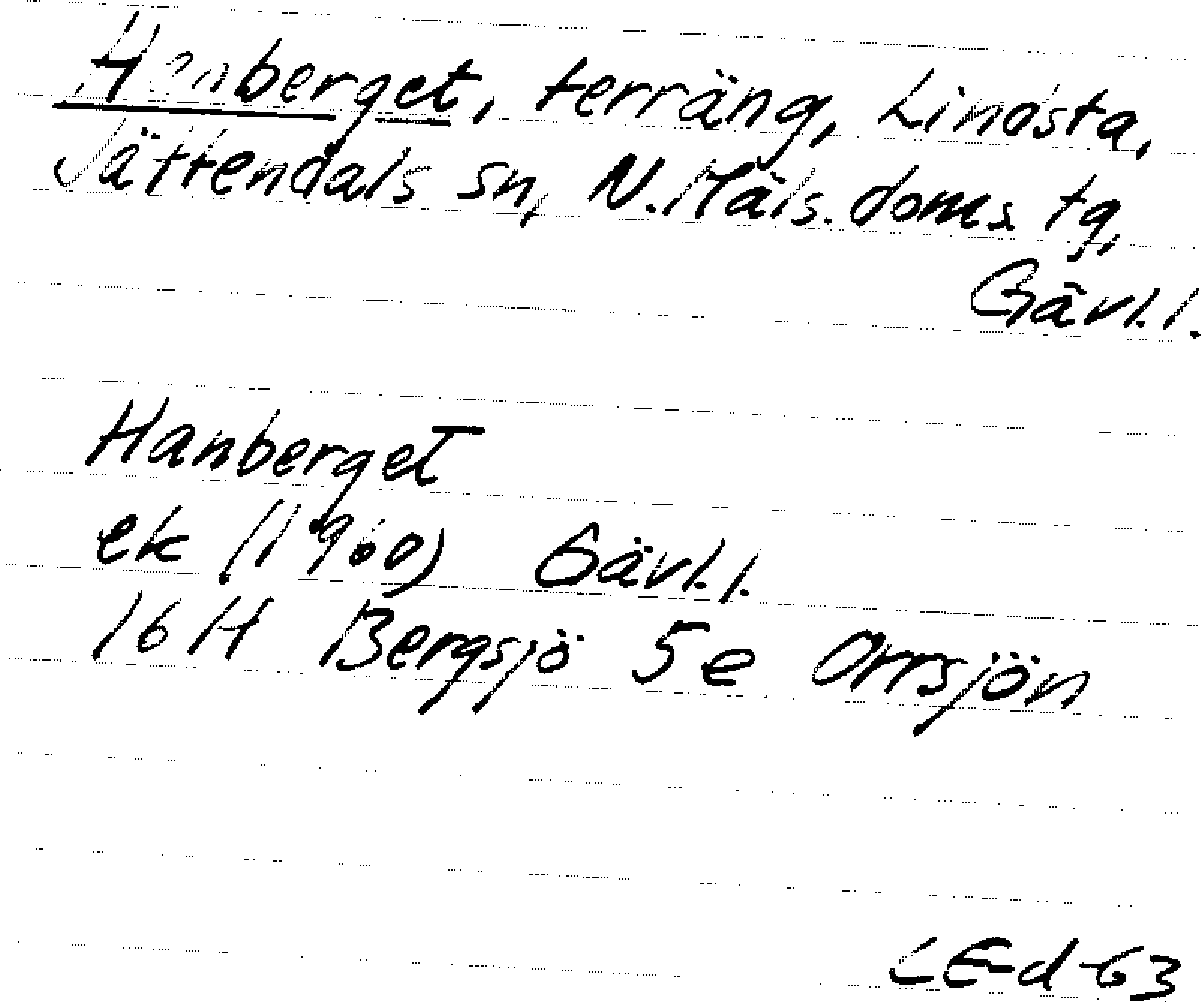 Hanberget, terräng, Lindsta,
Jättendals sn, N. Häls. doms tg,
Gävl.l.
Hanberget
ek (1960) Gävl.l.
16H Bergsjö 5e Orrsjön
LEd-63